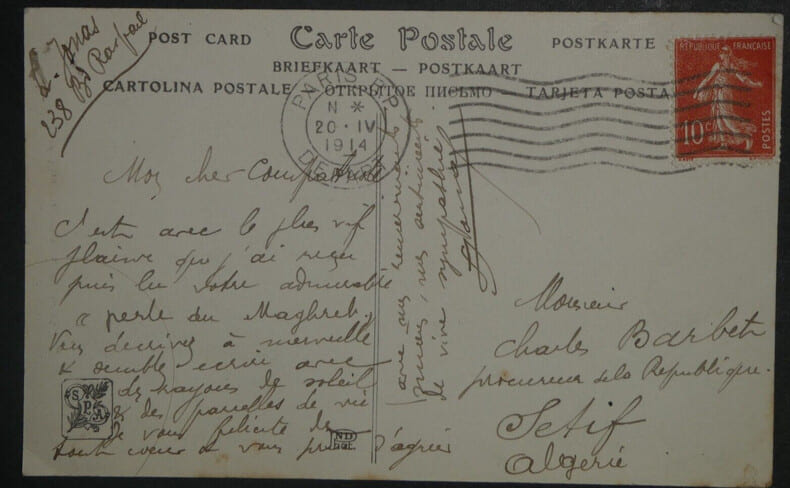 L. Jonas
238 Bd Raspail
POST CARD Carte Postale POSTKARTE
BRIEFKAART — POSTKAART
CARTOLINA POSTALE — ОТКРЫТОЕ ПИСЬМО — TARJETA POSTA
RÉPUBLIQUE FRANÇAISE
10c
POSTES
PARIS R.P.
N *
20 · IV
1914
DEPART
Mon cher Compatriote
C'est avec le plus vif
plaisir que j'ai reçu
puis lu votre admirable
"perle du Maghreb".
Vous décrivez à merveille
& semble écrire avec
des rayons de soleil
& des parcelles de vie
Je vous félicite de
tout coeur & vous prie d'agréer
avec mes remerciements
mes sentiments
de vive sympathie
LJonas
Monsieur
Charles Barbet
procureur de la Republique.
Setif
Algerie
SPA
ND
Phot.